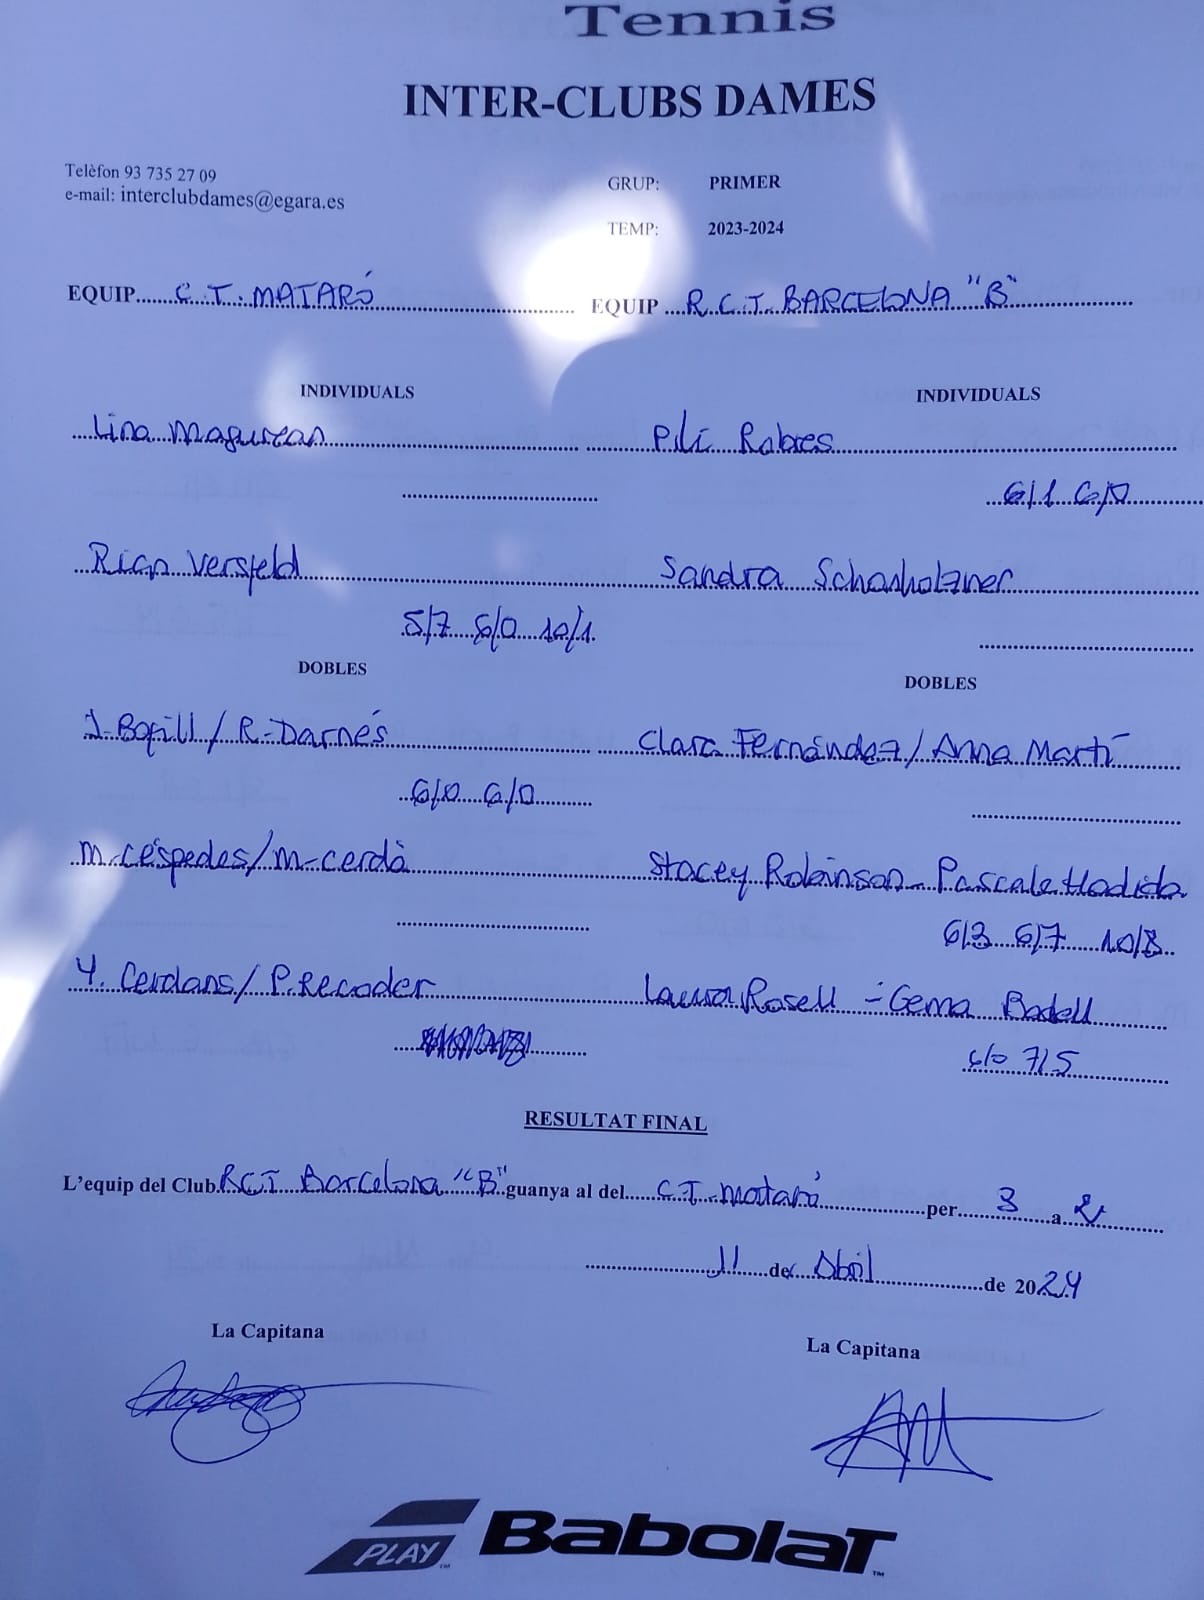 Tennis
INTER-CLUBS DAMES
Telèfon 93 735 27 09
e-mail: interclubdames@egara.es
GRUP: PRIMER
TEMP: 2023-2024
EQUIP C.T. MATARÓ
EQUIP R.C.T. BARCELONA "B"
INDIVIDUALS INDIVIDUALS
Lina Magurean Pili Robres
6/1 6/0
Rian Versfeld Sandra Schasholzner
5/7 6/0 10/1
DOBLES DOBLES
J. Bofill / R. Darnés Clara Fernández / Anna Martí
6/0 6/0
M. Céspedes / M. Cerdà Stacey Robinson - Pascale Hadida
6/3 6/7 10/8
Y. Cerdans / P. Recoder Laura Rosell - Gema Badell
6/0 7/5
RESULTAT FINAL
L'equip del Club RCT Barcelona "B" guanya al del C.T. Mataró per 3 a 2
11 de Abril de 2024
La Capitana La Capitana
PLAY Babolat